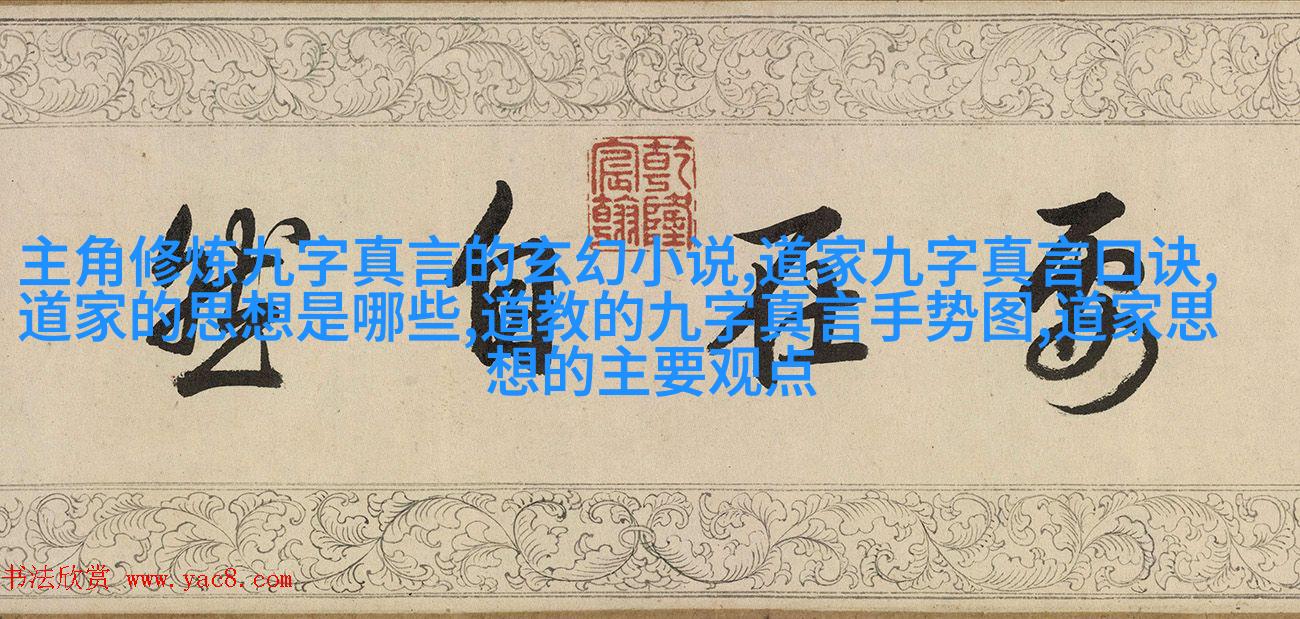 乾隆宸翰
主角修炼九字真言的玄幻小说,道家九字真言口诀,
道家的思想是哪些,道教的九字真言手势图,道家思
想的主要观点
书法欣赏 www.yac8.com